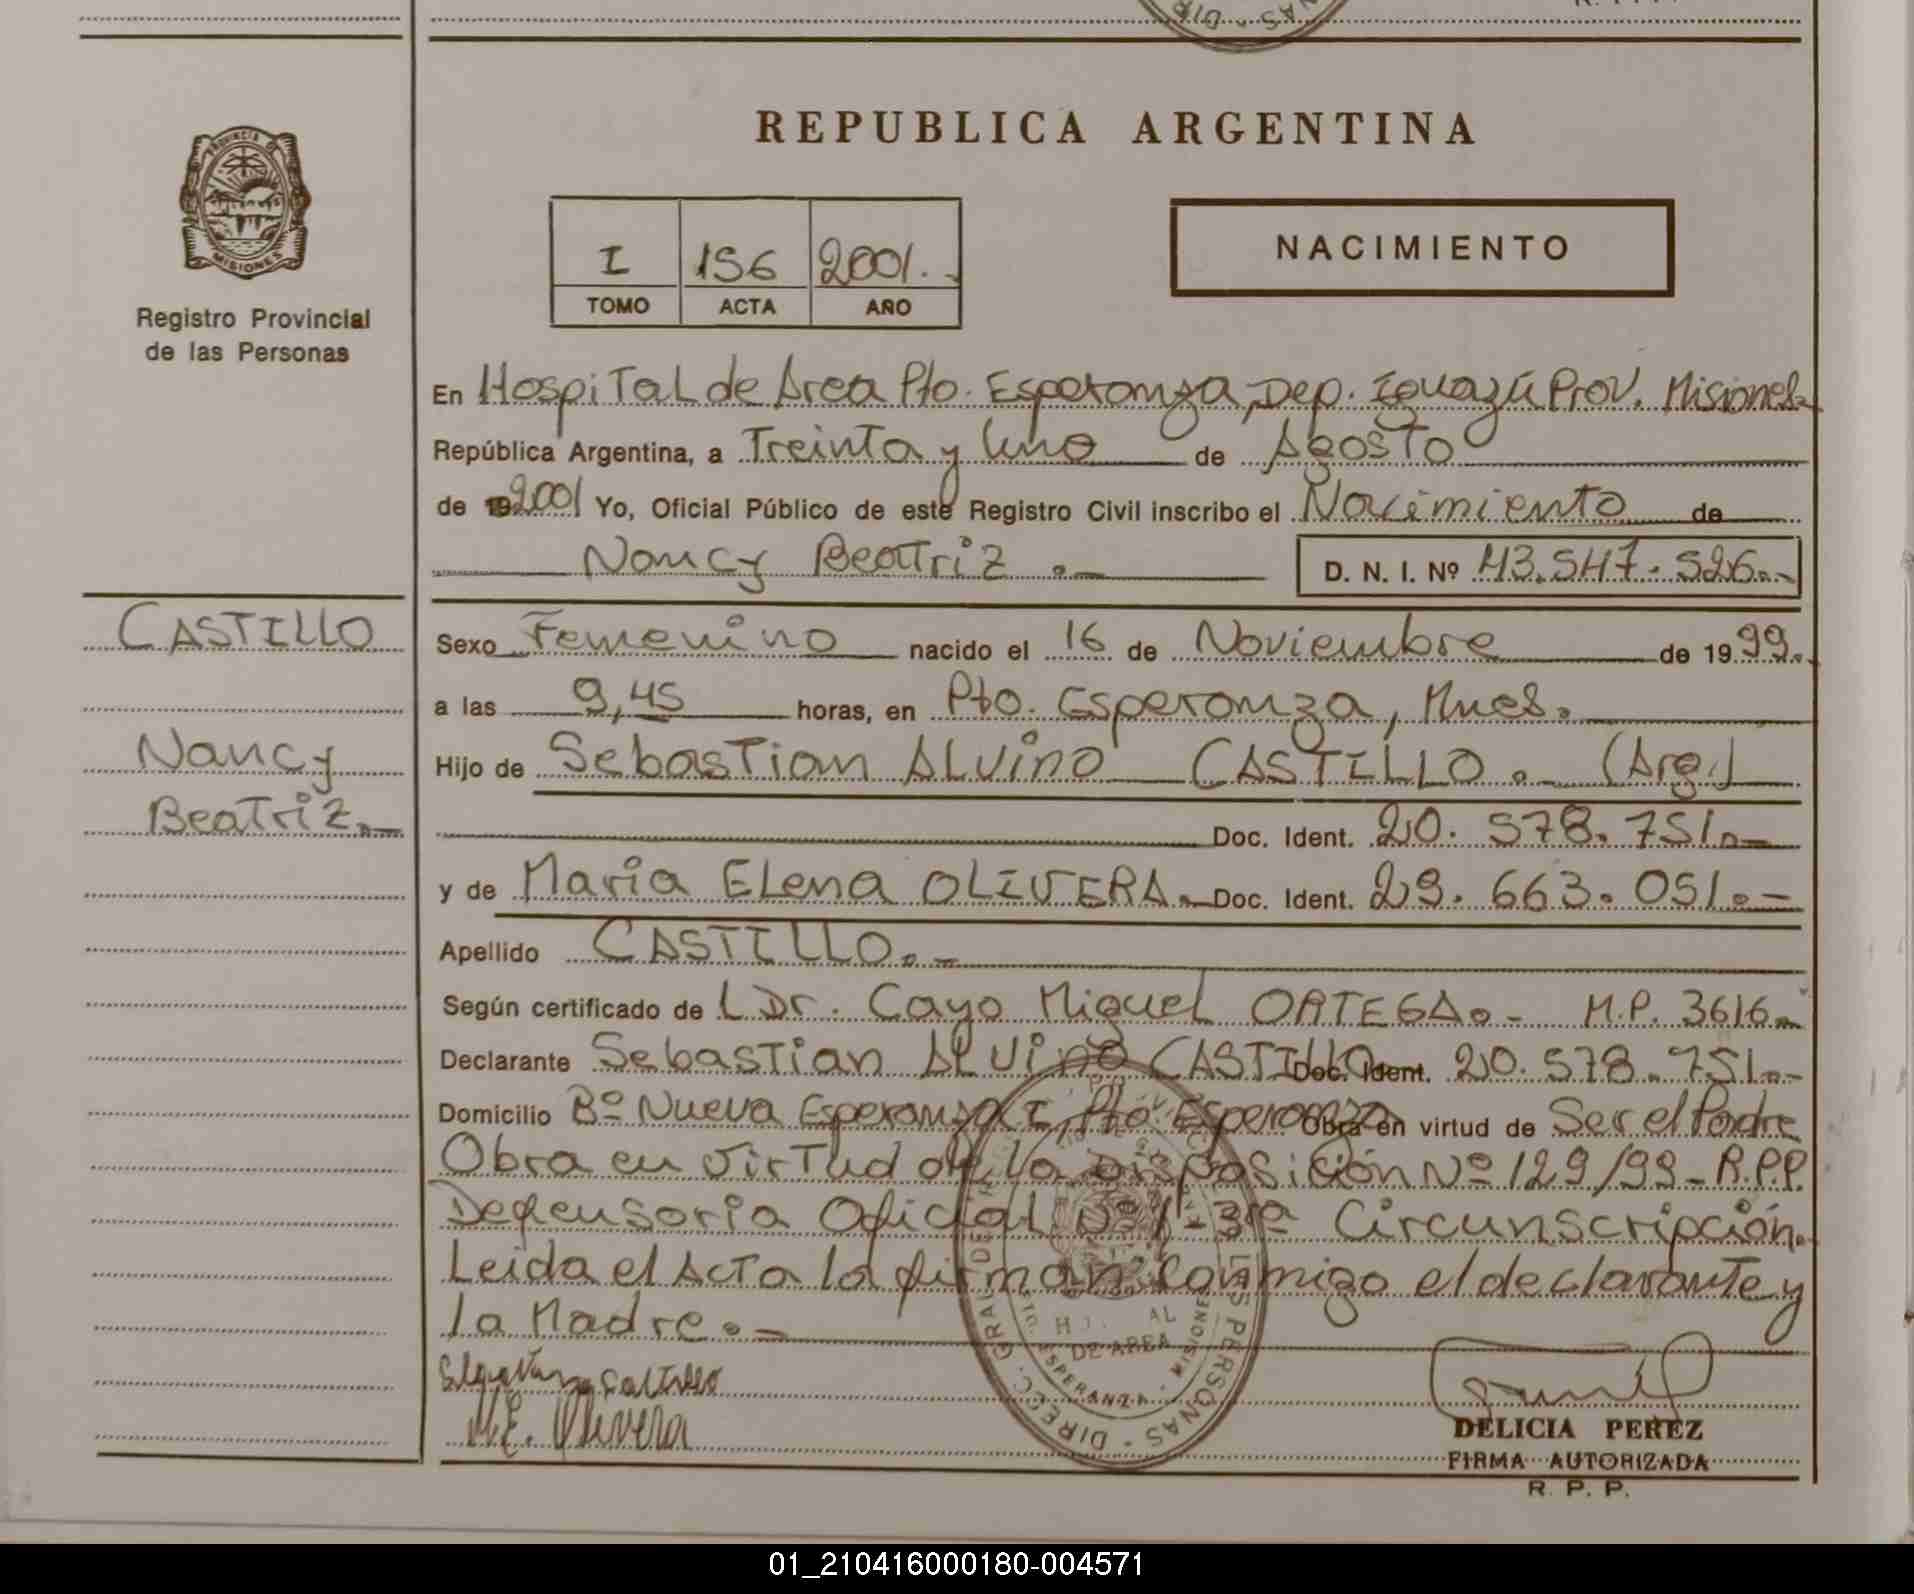 REPUBLICA ARGENTINA
PROVINCIA DE
MISIONES
Registro Provincial
de las Personas
I 156 2001.-
TOMO ACTA AÑO
NACIMIENTO
En Hospital de Area Pto. Esperanza, Dep. Iguazú Prov. Misiones
República Argentina, a Treinta y Uno de Agosto
de 192001 Yo, Oficial Público de este Registro Civil inscribo el Nacimiento de
Nancy Beatriz .- D. N. I. Nº 43.547.526.-
CASTILLO
Nancy
Beatriz.-
Sexo Femenino nacido el 16 de Noviembre de 1999.
a las 9,45 horas, en Pto. Esperanza, Mnes.
Hijo de Sebastian ALvino CASTILLO.- (Arg.)
Doc. Ident. 20.578.751.-
y de Maria ELena OLIVERA.- Doc. Ident. 29.663.051.-
Apellido CASTILLO.-
Según certificado de L Dr. Cayo Miguel ORTEGA.- M.P. 3616.-
Declarante Sebastian ALvino CASTILLO Doc. Ident. 20.578.751.-
Domicilio Bº Nueva Esperanza I, Pto. Esperanza Obra en virtud de Ser el Padre
Obra en virtud de la Disposición Nº 129/99-R.P.P.
Defensoria Oficial Nº 1-3ra Circunscripción.
Leida el Acta la firman conmigo el declarante y
la Madre.-
M.E. Olivera
DELICIA PEREZ
FIRMA AUTORIZADA
R. P. P.
DE AREA
PTO. ESPERANZA - MISIONES
DIRECC. GRAL. DE LAS PERSONAS
01_210416000180-004571